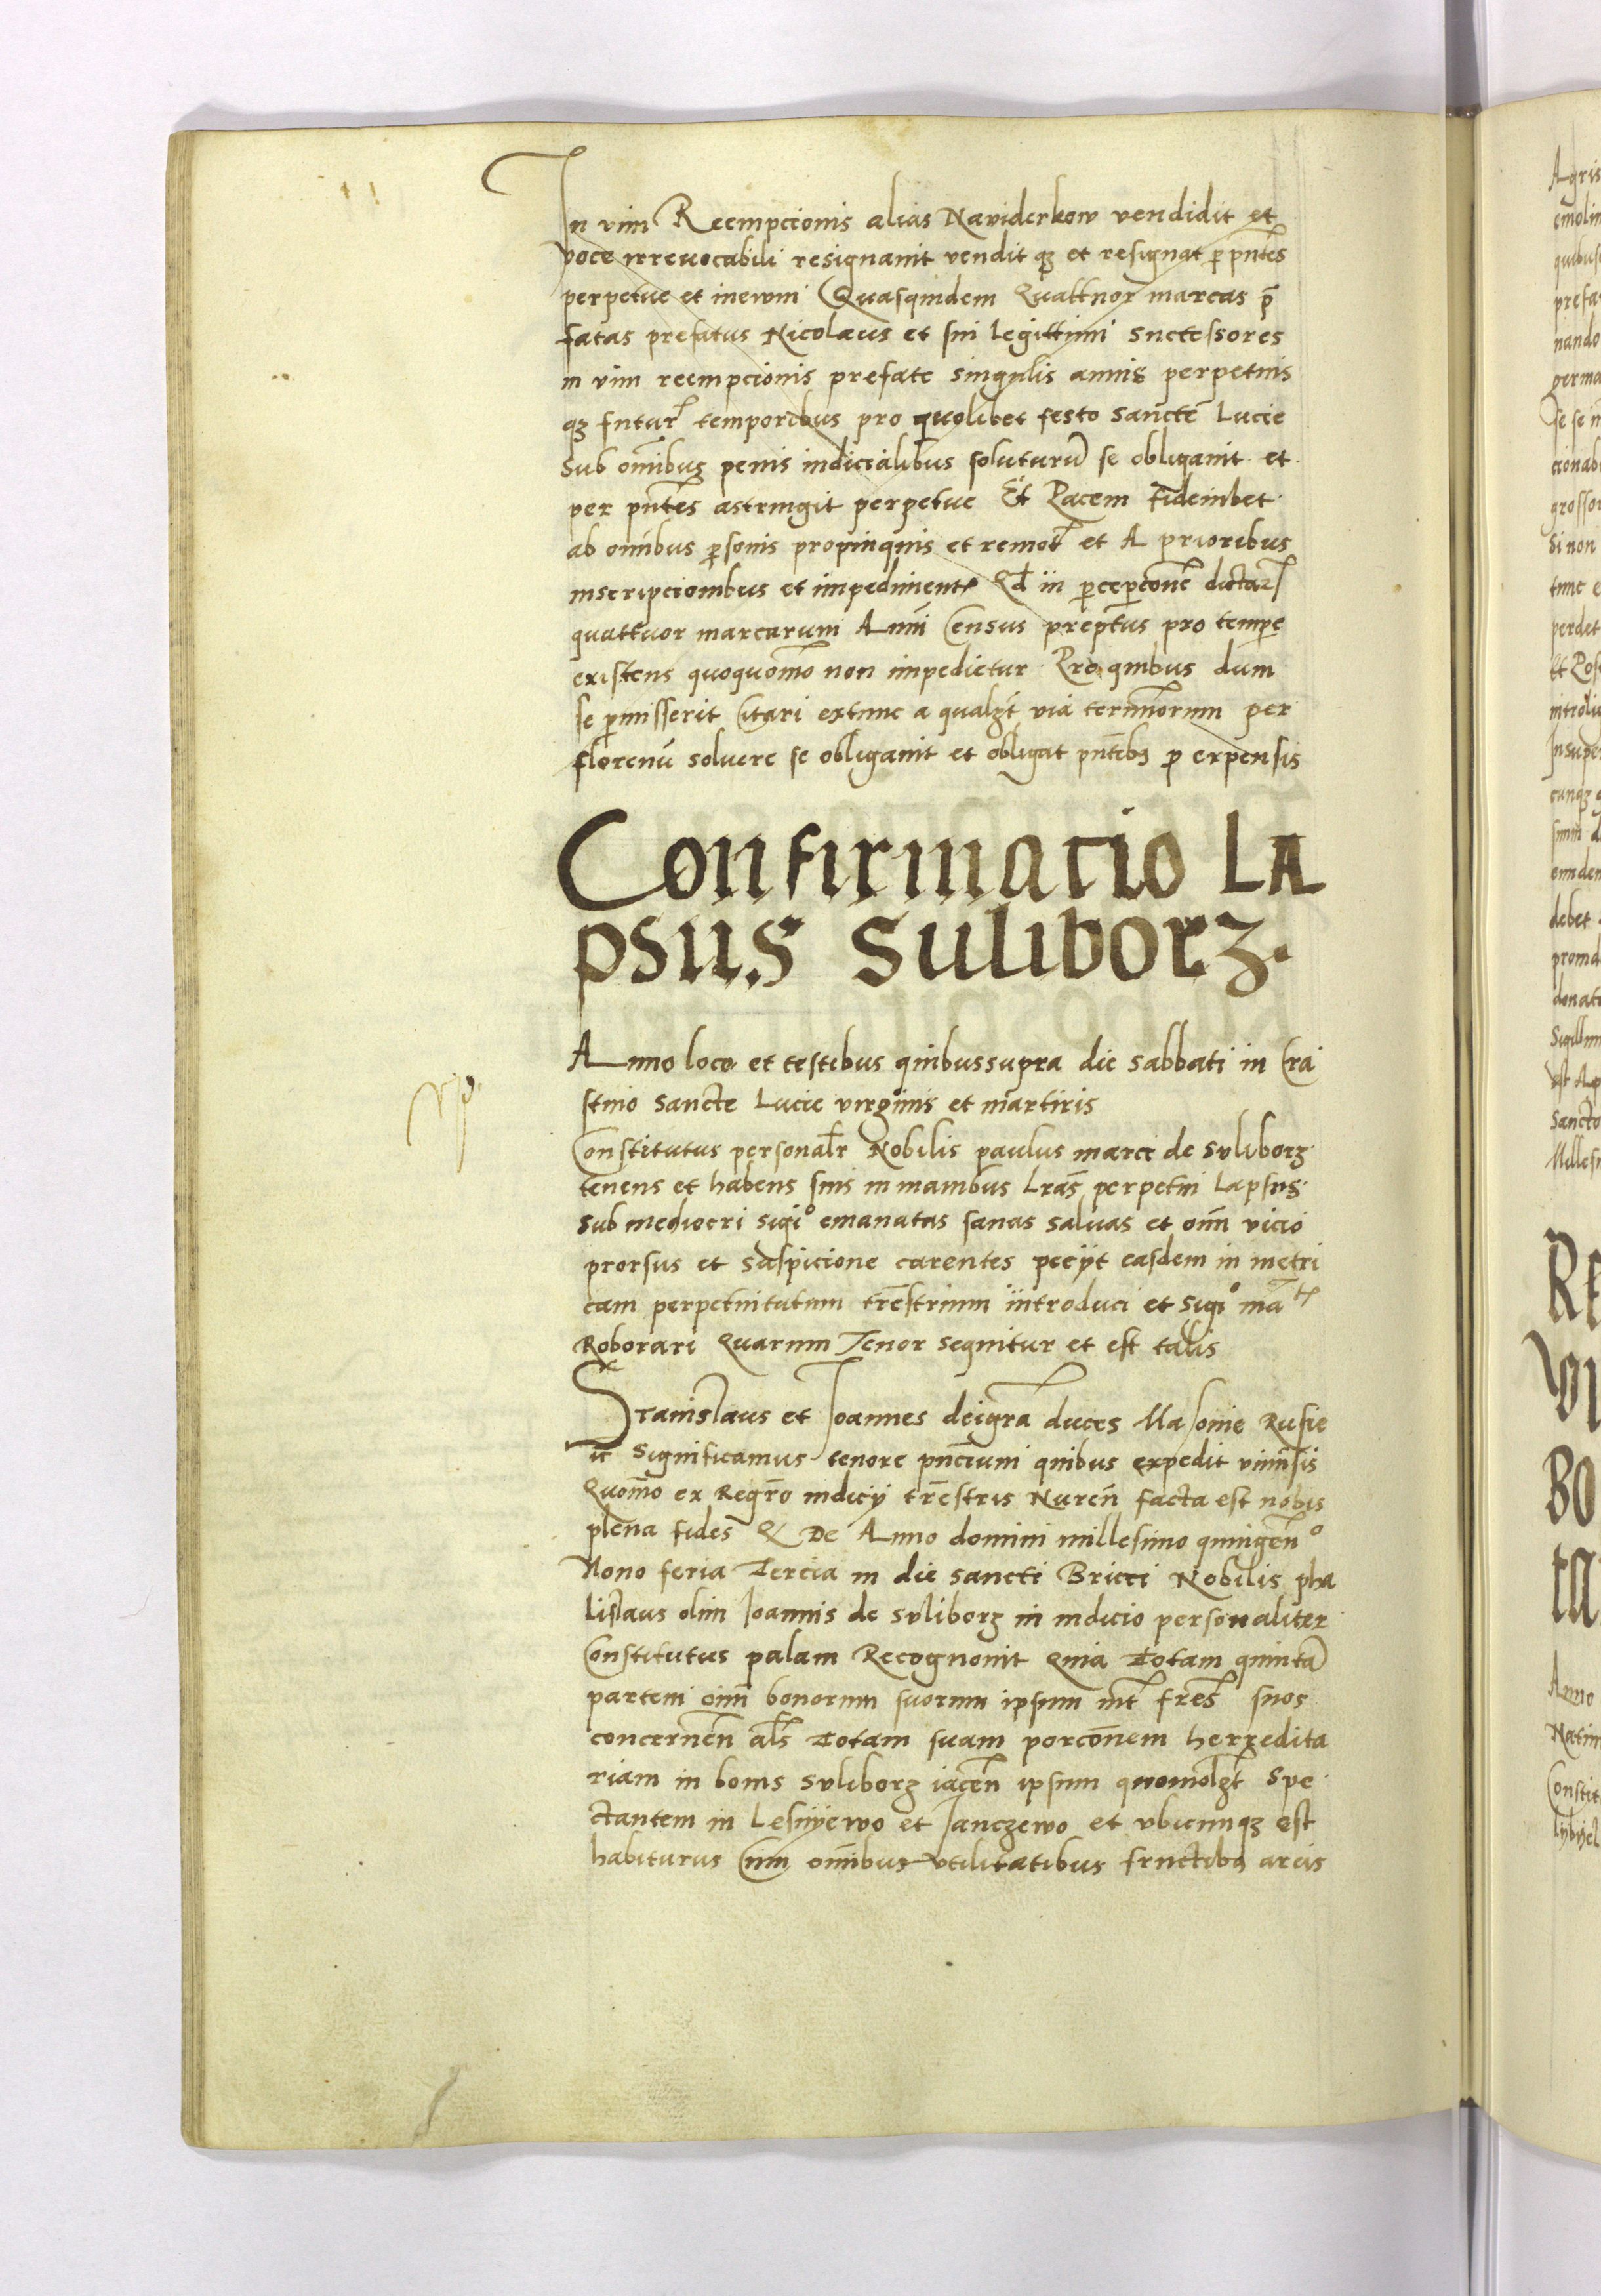 In vim Reempcionis alias Nawiderkow vendidit et
voce irreuocabili resignauit vendit qʒ et resignat p pn̄tes
perpetue et ineuum Quasquidem Quattuor marcas p̄
fatas prefatus Nicolaus et sui legittimi Successores
in vim reempcionis prefate singulis annis perpetuis
qʒ futur̄ temporibus pro quolibet festo Sancte Lucie
Sub om̄ibus penis iudicialibus soluturū se obligauit et
per pn̄tes astringit perpetue Et Pacem fideiubet
ab om̄ibus psonis propinquis et remot̄ et A prioribus
inscripcionibus et impediment̄ Qd̄ in pcepcone dictar̄
quattuor marcarum Annui Census preptus pro tempe
existens quoquomo non impedietur Pro quibus dum
se pmisserit Citari extunc a qualʒt via terminorum per
florenū soluere se obligauit et obligat pn̄tebʒ p expensis
Confirmacio La
psus Suliborz.
Anno loco et testibus quibussupra die Sabbati in Cra
stino Sancte Lucie virginis et martiris
Constitutus personalr̄ Nobilis paulus marci de Suliborz
tenens et habens suis in manibus Lrās perpetui Lapsus
Sub mediocri sigi° emanatas sanas saluas et om̄i vicio
prorsus et saspicione carentes peciit easdem in metri
cam perpetuitatum tr̄estrium introduci et sigi° mat̄
Roborari Quarum Tenor sequitur et est talis
Stanislaus et Joannes deigra duces Masouie Rusie
ic Significamus tenore pn̄cium quibus expedit vniūsis
Quomo ex Regr̄o iudicij tr̄estris Nuren̄ facta est nobis
plena fides Q De Anno domini millesimo quingen̄°
Nono feria Tercia in die sancti Bricci Nobilis pha
lislaus olim Joannis de Suliborz in iudicio personaliter
Constitutus palam Recognouit Quia Totam quintā
partem om̄i bonorum suorum ipsum int̄ fr̄es suos
concernen̄ al̄s Totam suam porcōnem herredita
riam in bonis Suliborz iacen̄ ipsum quomolʒt Spe
ctantem in Lesnyewo et Janczewo et vbicunqʒ est
habiturus Cum om̄ibus vtilitatibus fructibʒ arcis